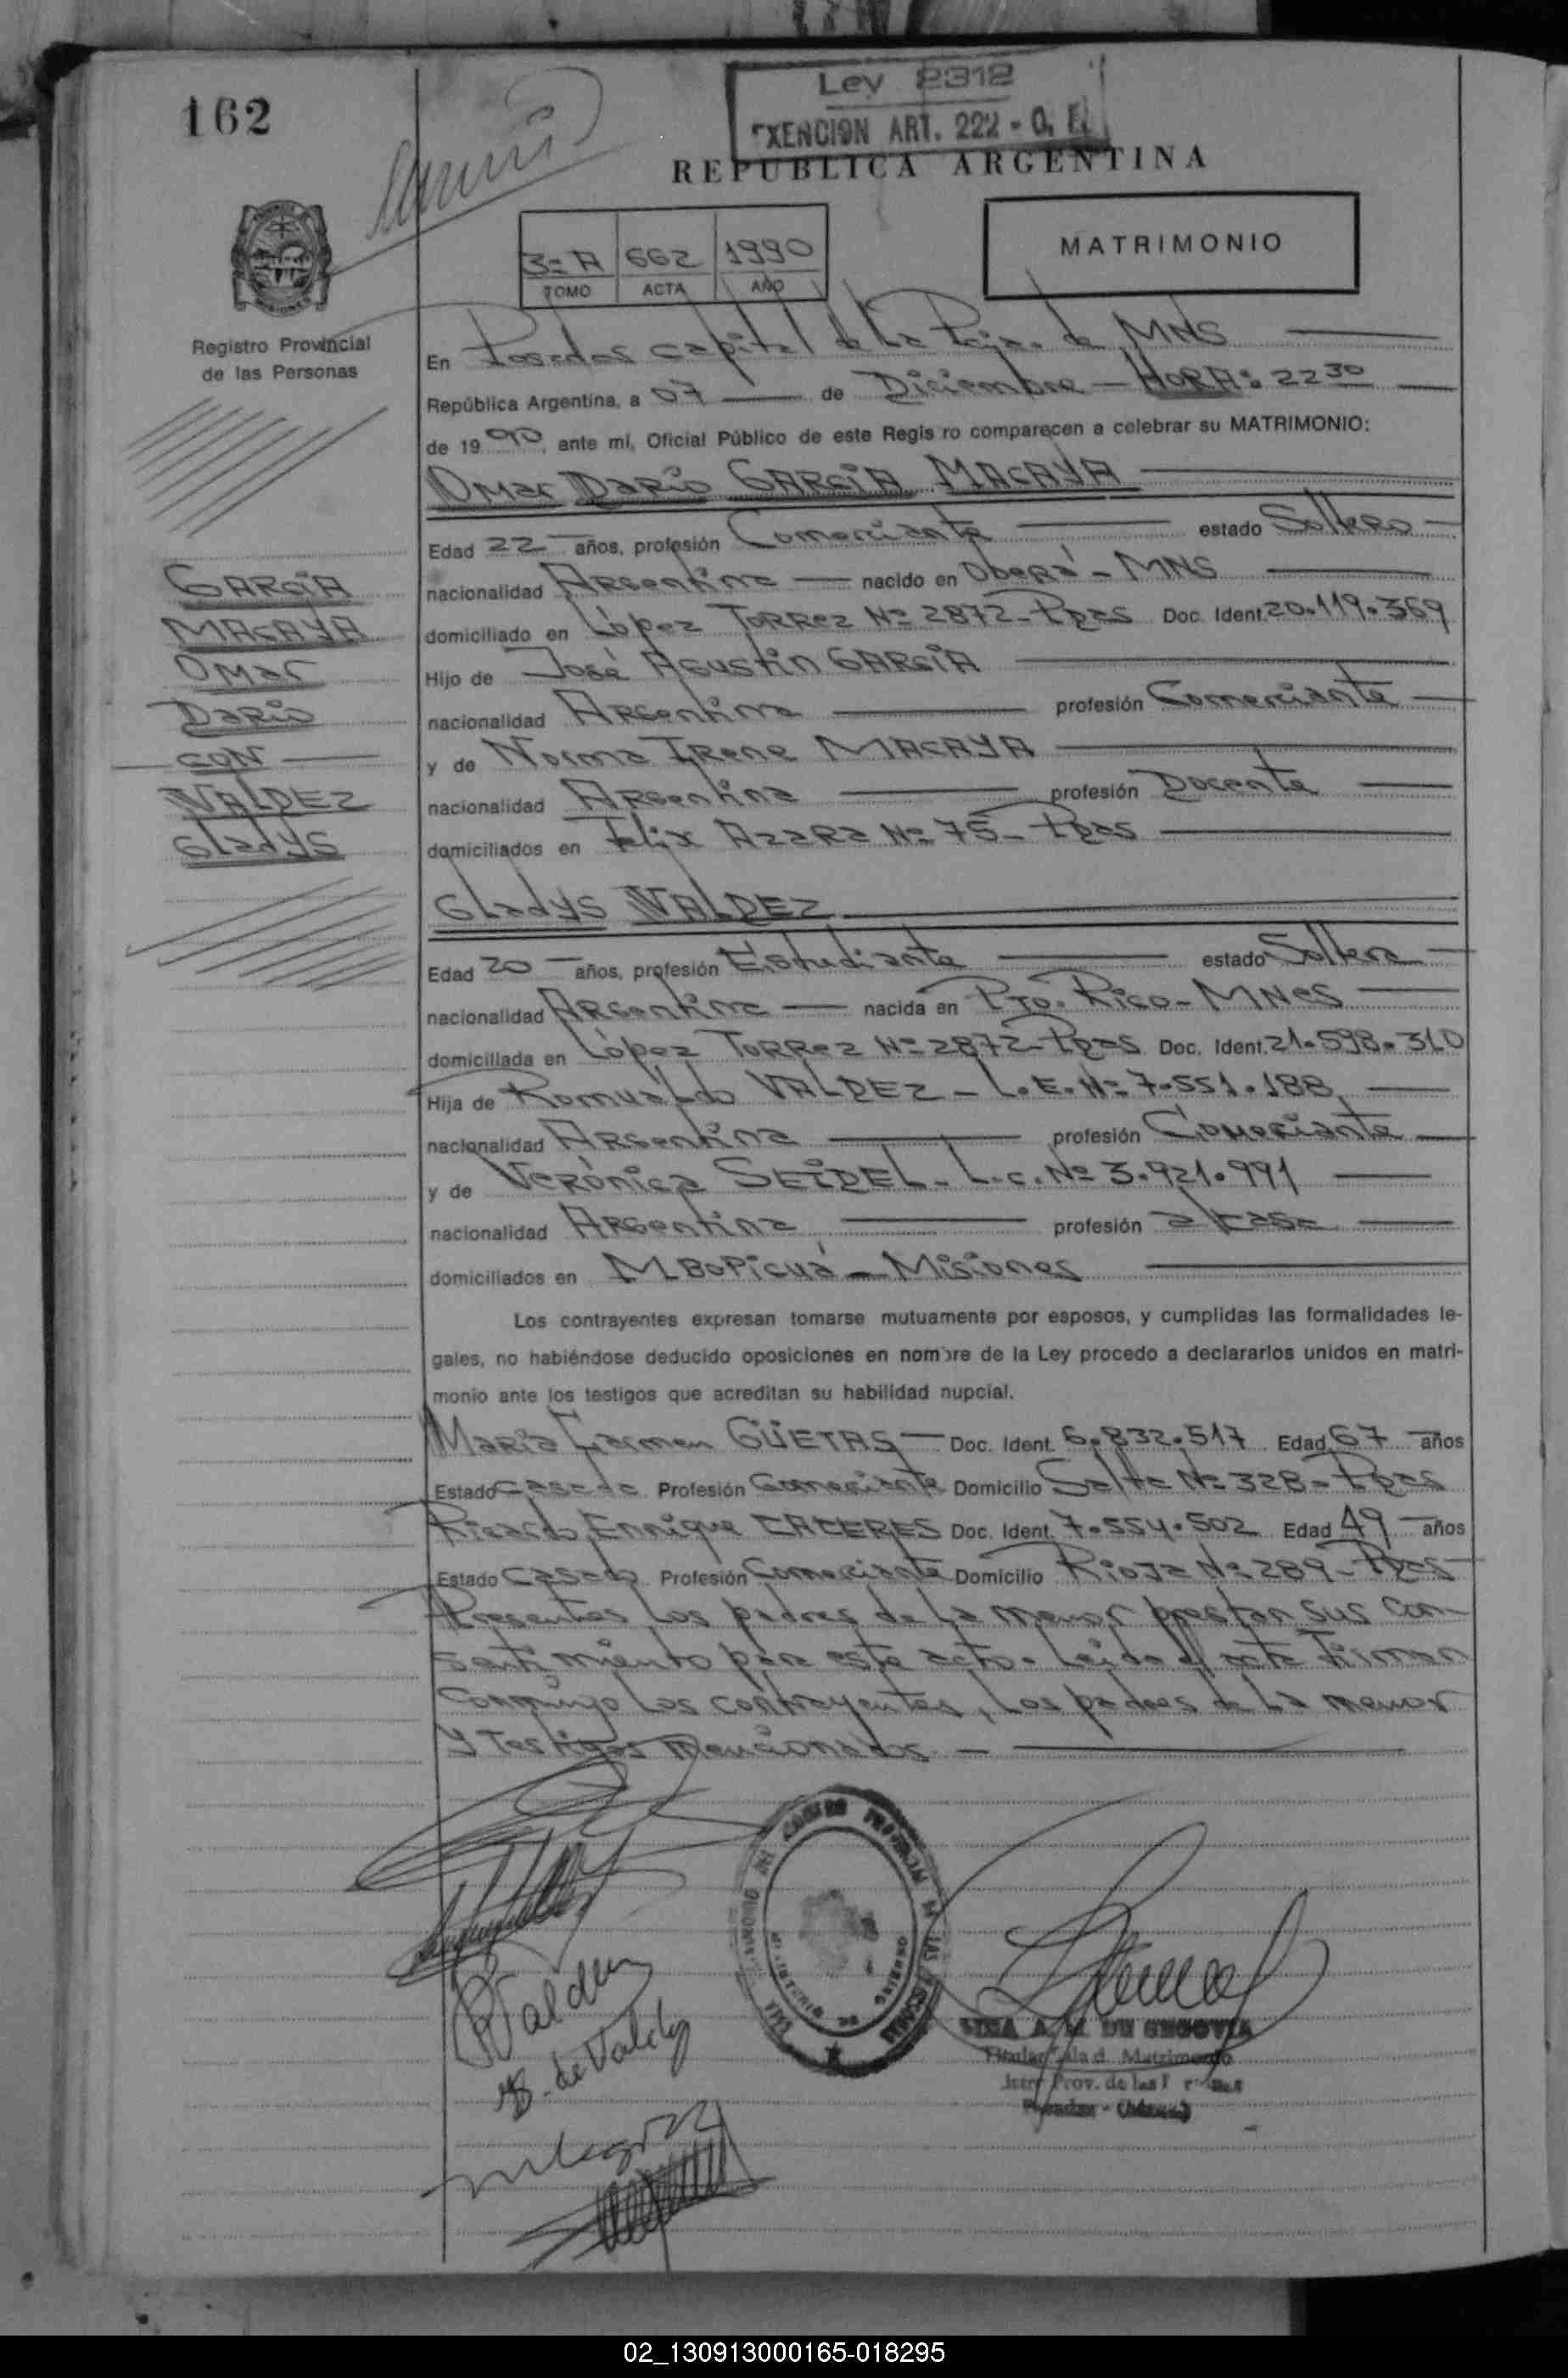 162
Ley 2312
EXENCION ART. 222 - O. F.
REPUBLICA ARGENTINA
3º A 662 1990
TOMO ACTA AÑO
MATRIMONIO
Registro Provincial
de las Personas
En Posadas capital de La Pcia. de MNS
República Argentina, a 07 de Diciembre - HORA: 22 30
de 19 90 ante mí, Oficial Público de este Registro comparecen a celebrar su MATRIMONIO:
Omar Dario GARCIA MACAYA
Edad 22 años, profesión Comerciante estado Soltero
nacionalidad Argentina nacido en Oberá - MNS
domiciliado en López Torrez Nº 2872 - Pdas Doc. Ident. 20.119.369
Hijo de José Agustin GARCIA
nacionalidad Argentina profesión Comerciante
y de Norma Irene MACAYA
nacionalidad Argentina profesión Docente
domiciliados en Felix Azara Nº 75 - Pdas
GARCIA
MACAYA
Omar
Dario
CON
VALDEZ
Gladys
Gladys VALDEZ
Edad 20 años, profesión Estudiante estado Soltera
nacionalidad Argentina nacida en Pto. Rico - MNES
domiciliada en López Torrez Nº 2872 - Pdas Doc. Ident. 21.598.310
Hija de Romualdo VALDEZ - L.E. Nº 7.551.188
nacionalidad Argentina profesión Comerciante
y de Verónica SEIDEL - L.C. Nº 3.921.991
nacionalidad Argentina profesión a/casa
domiciliados en MBOPicuá - Misiones
Los contrayentes expresan tomarse mutuamente por esposos, y cumplidas las formalidades le-
gales, no habiéndose deducido oposiciones en nombre de la Ley procedo a declararlos unidos en matri-
monio ante los testigos que acreditan su habilidad nupcial.
Maria Carmen GÜETAS Doc. Ident. 6.832.517 Edad 67 años
Estado Casada Profesión Comerciante Domicilio Salta Nº 328 - Pdas
Ricardo Enrique CACERES Doc. Ident. 7.554.502 Edad 49 años
Estado Casado Profesión Comerciante Domicilio Rioja Nº 289 - Pdas
Presentes Los padres de La menor prestan sus con-
sentimiento para este acto. Leida el acta firman
conmigo Los contrayentes, Los padres de La menor
y Testigos mencionados -
R Valdez
de Valdez
LINA A. M. DE SEGOVIA
Titular Sala d. Matrimonio
Prov. de las
Posadas - (Mnes.)
02_130913000165-018295